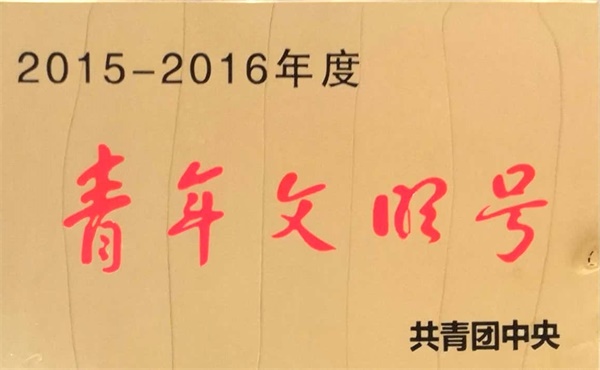 2015-2016年度
青年文明号
共青团中央